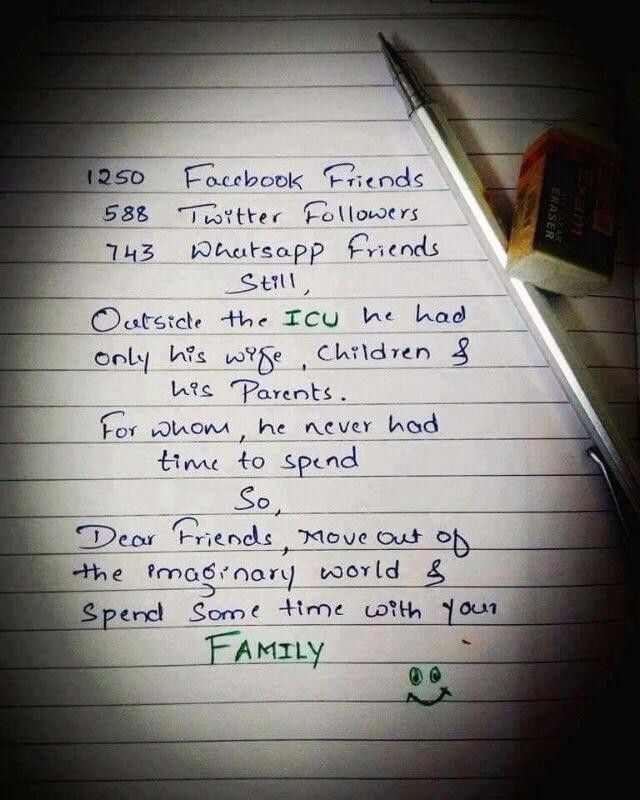 1250 Facebook Friends
588 Twitter Followers
743 Whatsapp Friends
Still,
Outside the ICU he had
only his wife, Children &
his Parents.
For whom, he never had
time to spend
So,
Dear Friends, Move out of
the imaginary world &
Spend Some time with your
FAMILY
Exam
ERASER